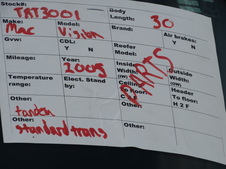 Stock#: TRT3001 Body Length: 30
Make: Mac Model: Vision Brand: Air brakes: Y N
Gvw: CDL: Y N Reefer Model:
Mileage: Year: 2005 Inside Width: Outside Width:
Temperature range: Elect. Stand by: Ceiling To floor: Header To floor:
PARTS
Other: tandem C H 2 F
Other: standard trans Other: Other: